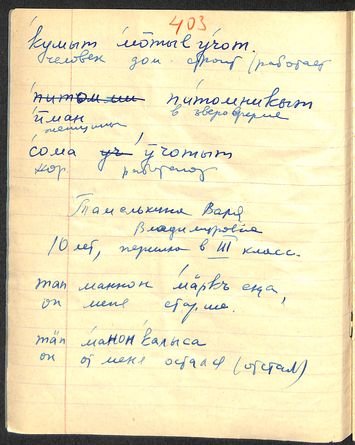 403
кумыт мӧтыв ӱчот.
человек дом строит (работает
питом ми питомникыт
ӣман в звероферме
женщины
сома уч ӱчотыт
хор. работают
Тамелькина Варя
Владимировна
10 лет, перешла в III класс.
тап маннон мäркъ еңа,
он меня старше.
тäп манон калыса
он от меня остался (отстал)